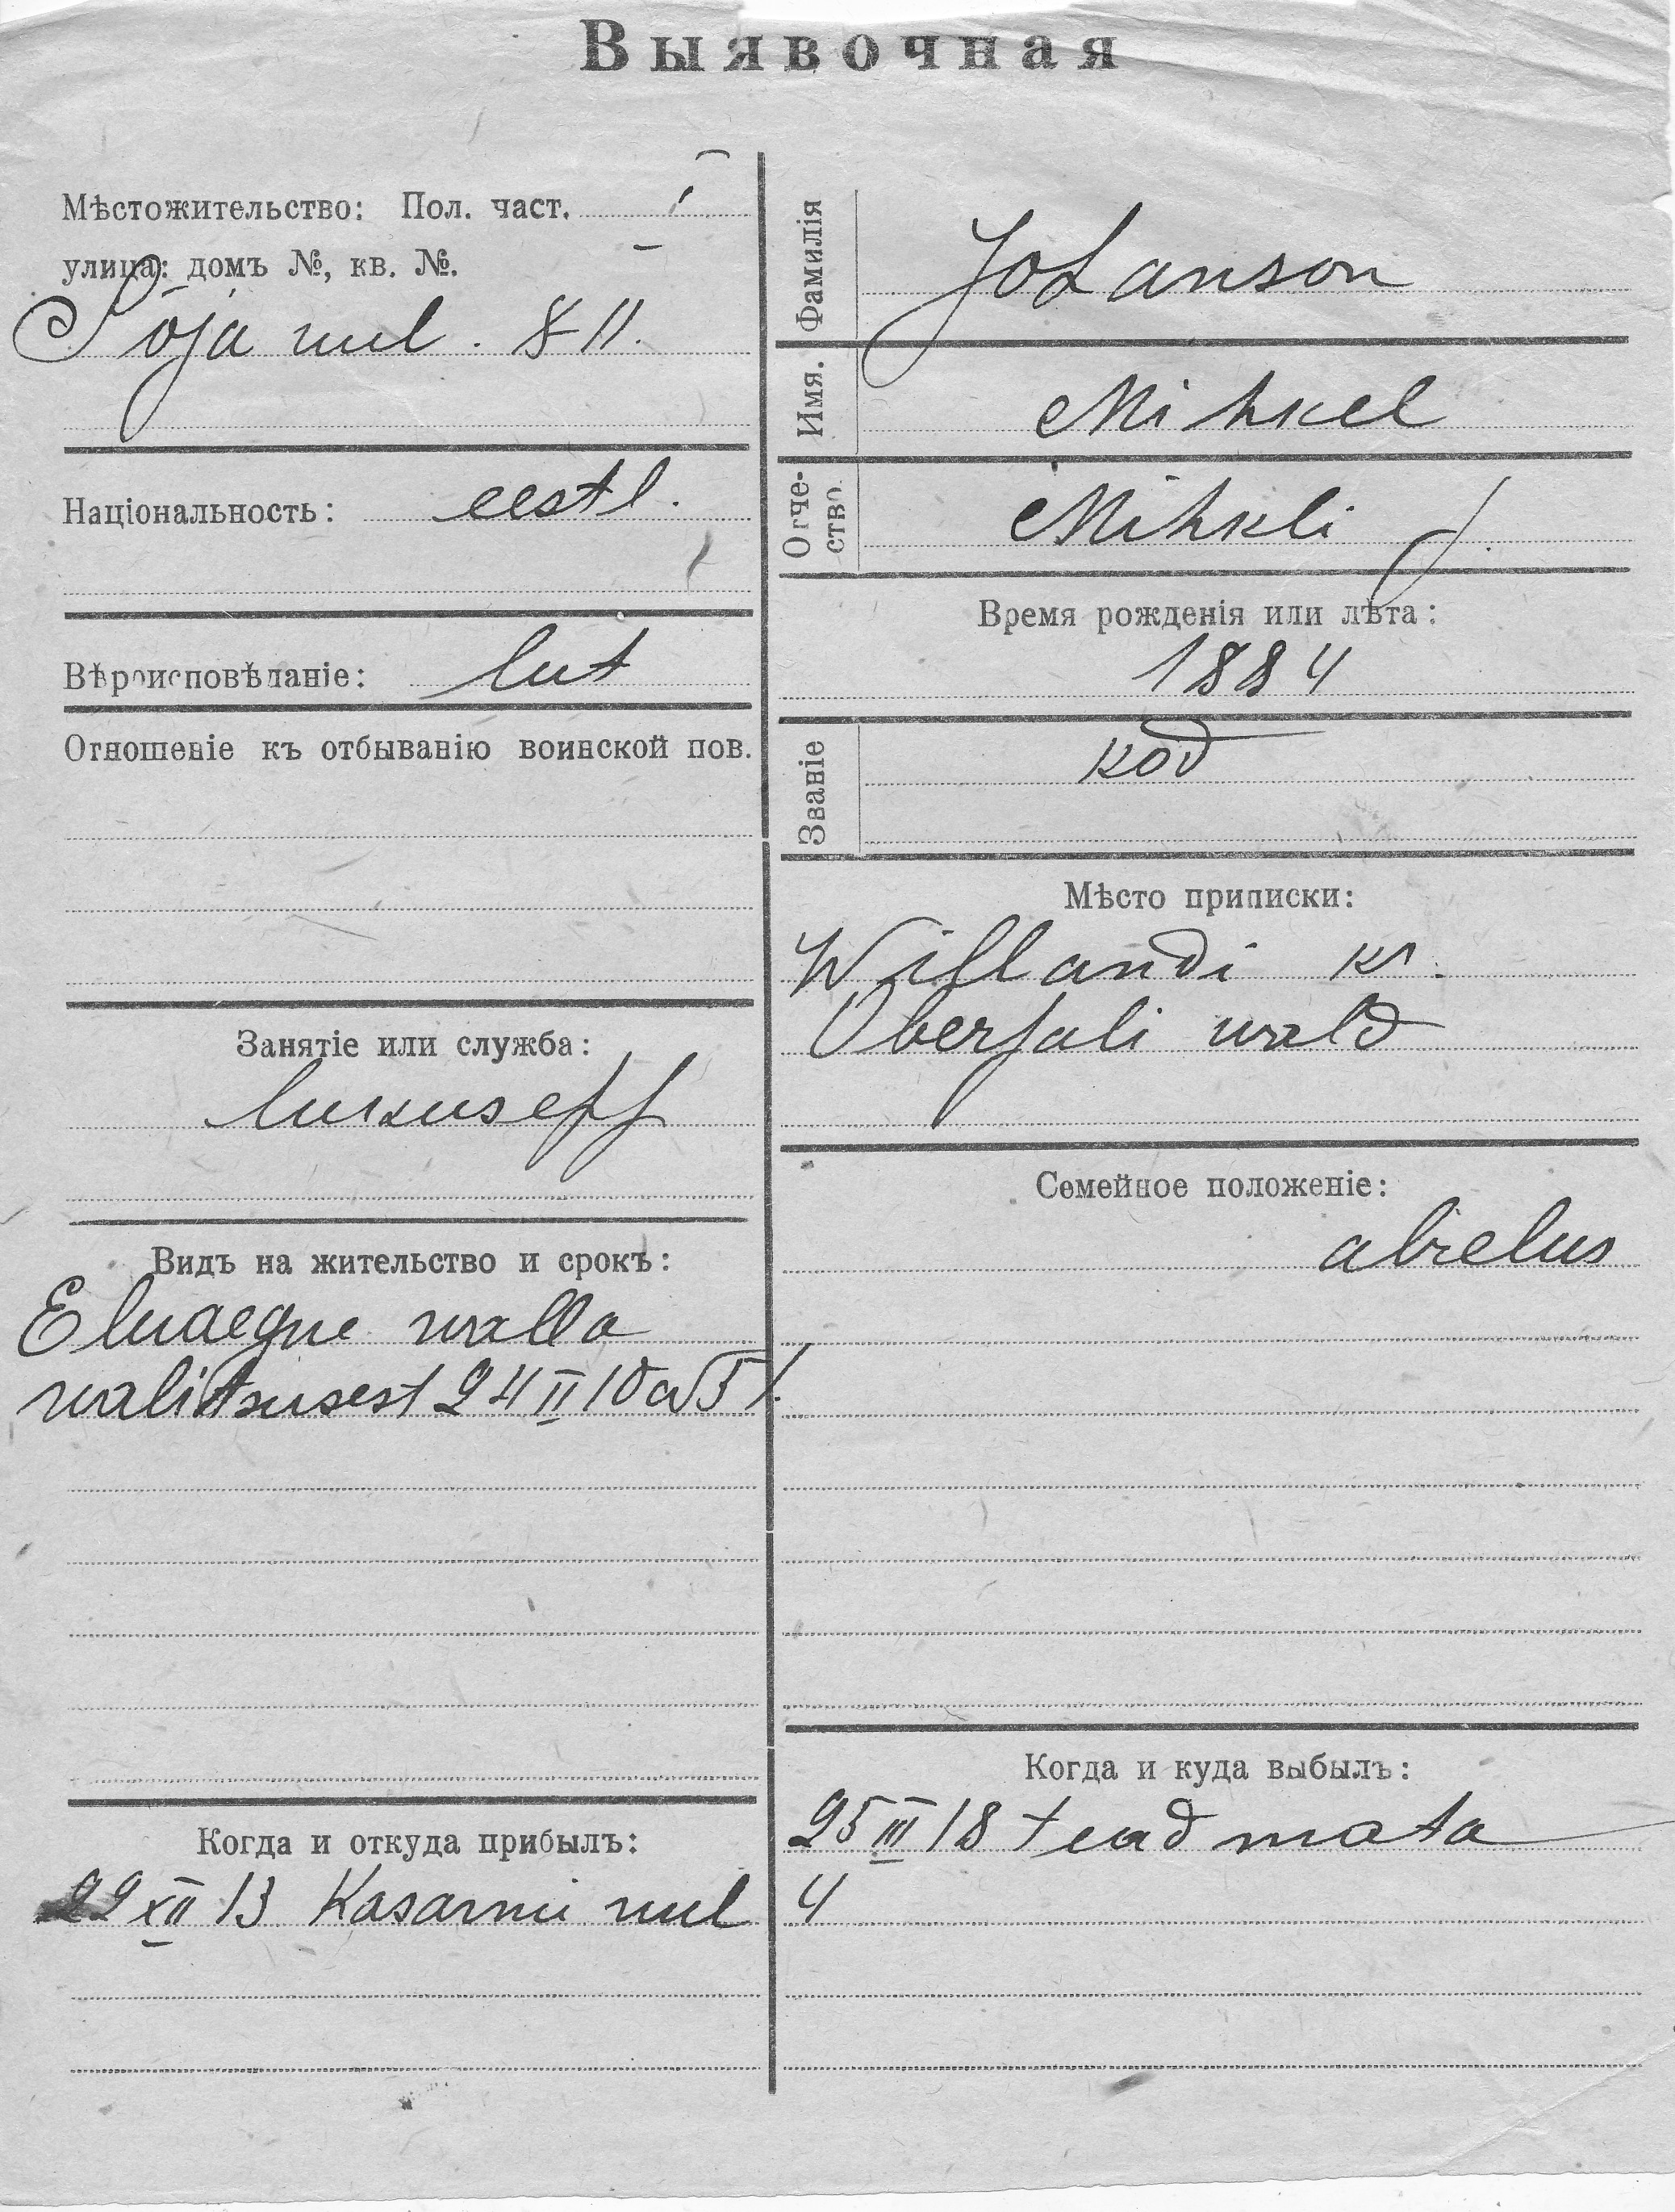 Выявочная
Мѣстожительство: Пол. част. I
улица: домъ №, кв. №.
Sõja uul. 8 11.
Національность: eestl.
Вѣроисповѣданіе: lut
Отношеніе къ отбыванію воинской пов.
Занятіе или служба:
lukusepp
Видъ на жительство и срокъ:
Elmaegne walla
walitsusest 24 II 10 a 5
Когда и откуда прибылъ:
22 XII 13 Kasarmu uul
Фамилія Johanson
Имя. Mihkel
Отчество. Mihkli p.
Время рожденія или лѣта:
1884
Званіе kod
Мѣсто приписки:
Willandi kr.
Oberpali wald
Семейное положеніе:
abielus
Когда и куда выбылъ:
25 III 18 teadmata
4